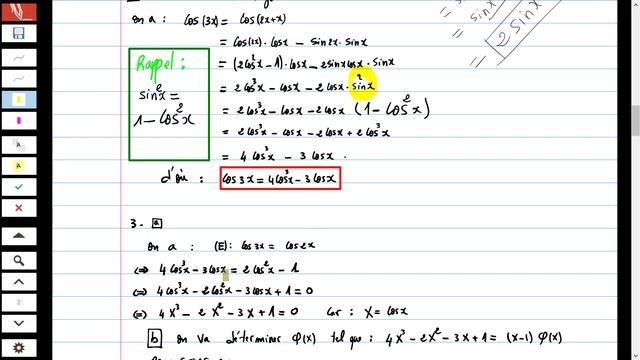 on a : cos(3x) = cos(2x+x)
sinx
2sinx
= cos(2x). cosx - sin2x. sinx
= (2cos²x-1). cosx - 2sinxcosx . sinx
Rappel :
sin²x =
1 - cos²x
= 2cos³x - cosx - 2cosx. sin²x
= 2cos³x - cosx - 2cosx (1 - cos²x)
= 2cos³x - cosx - 2cosx + 2cos³x
= 4cos³x - 3cosx .
d'où : cos3x = 4cos³x - 3cosx
3. a
on a : (E): cos3x = cos2x
⟺ 4cos³x - 3cosx = 2cos²x - 1
⟺ 4cos³x - 2cos²x - 3cosx + 1 = 0
⟺ 4X³ - 2X² - 3X + 1 = 0 Car : X = cosx
b on va déterminer φ(X) tel que : 4X³ - 2X² - 3X + 1 = (X-1) φ(X)